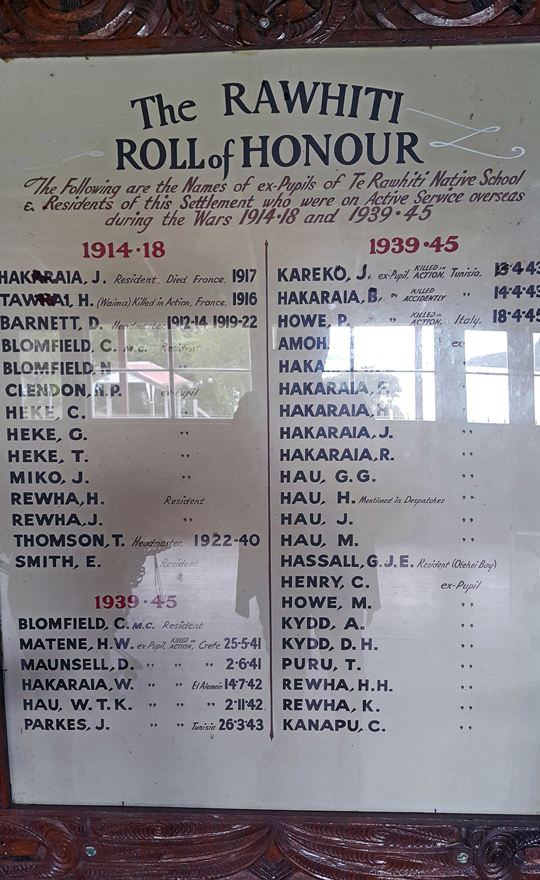 The RAWHITI
ROLL of HONOUR
The Following are the Names of ex-Pupils of Te Rawhiti Native School
& Residents of this Settlement who were on Active Service overseas
during the Wars 1914·18 and 1939·45
1914·18
HAKARAIA, J. Resident, Died France, 1917
H. (Waima) Killed in Action, France, 1916
BARNETT, D. Headmaster 1912-14, 1919-22
BLOMFIELD, C. M.C. Resident
BLOMFIELD, N "
CLENDON, H.P. ex-Pupil
HEKE, C. "
HEKE, G. "
HEKE, T. "
MIKO, J. "
REWHA, H. Resident
REWHA, J. "
THOMSON, T. Headmaster, 1922-40
SMITH, E. Resident
1939·45
BLOMFIELD, C. M.C. Resident
MATENE, H.W. ex-Pupil, KILLED IN ACTION, Crete. 25·5·41
MAUNSELL, D. " " " 2·6·41
HAKARAIA, W. " " El Alemein 14·7·42
HAU, W.T.K. " " " 2·11·42
PARKES, J. " " Tunisia 26·3·43
1939·45
KAREKO, J. ex-Pupil, KILLED IN ACTION, Tunisia. 13·4·43
HAKARAIA, B, " KILLED ACCIDENTLY " 14·4·43
HOWE, P. " KILLED IN ACTION, Italy. 18·4·45
AMOH ex
HAKA
HAKARAIA,
HAKARAIA, H "
HAKARAIA, J. "
HAKARAIA, R. "
HAU, G.G. "
HAU, H. Mentioned in Despatches "
HAU, J. "
HAU, M. "
HASSALL, G.J.E. Resident (Otehei Bay)
HENRY, C. ex-Pupil
HOWE, M. "
KYDD, A. "
KYDD, D.H. "
PURU, T. "
REWHA, H.H. "
REWHA, K. "
KANAPU, C. "